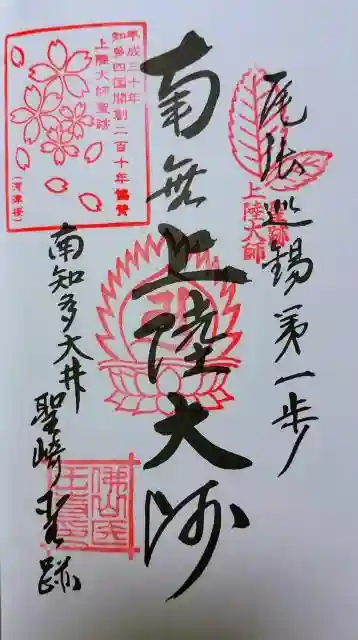 尾張巡錫第一歩
聖跡
上陸大師
南無上陸大师
平成三十年
知多四国開創二百十年 協賛
上陸大師聖跡
(河津桜)
南知多大井
聖崎聖跡